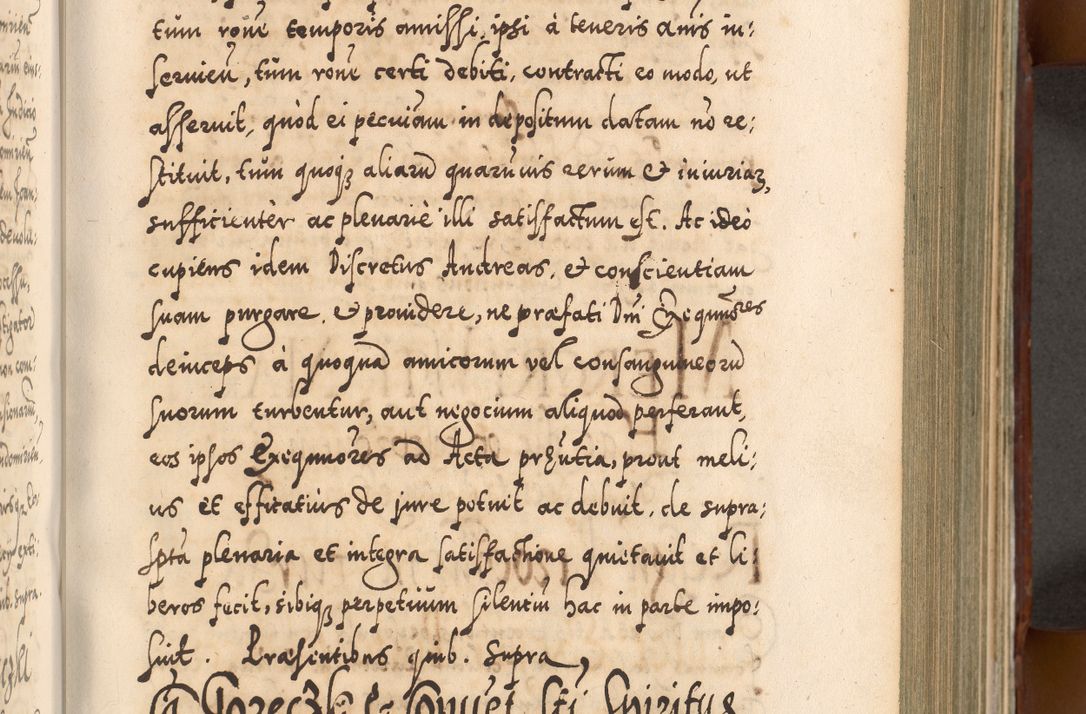 tùm rõne temporis amissi, ipsi à teneris anis in:
servieñ, tùm rone certi debiti, contracti eo modo, ut
asseruit, quòd ei pecuniam in depositum datam nõ re:
stituit, tùm quoqз aliarũ quarũuis rerum & iniuriaꝝ,
sufficientèr ac plenariè illi satisfactum est. Ac ideò
cupiens idem Discretus Andreas, et conscientiam
suam purgare, et prouidere, ne præfati Dni Exequutores
deinceps à quoquã amicorum vel consanguineorũ
suorum turbentur, aut negocium aliquod perferant,
eos ipsos Exequutores ad Acta præntia, prout meli:
us et efficatius de jure potuit ac debuit, de supra:
spta plenaria et integra satisfactione quietauit et li:
beros fecit, sibiqз perpetuum silentiũ hac in parte impo:
suit. Præsentibus quib. supra,
Sti Spiritus